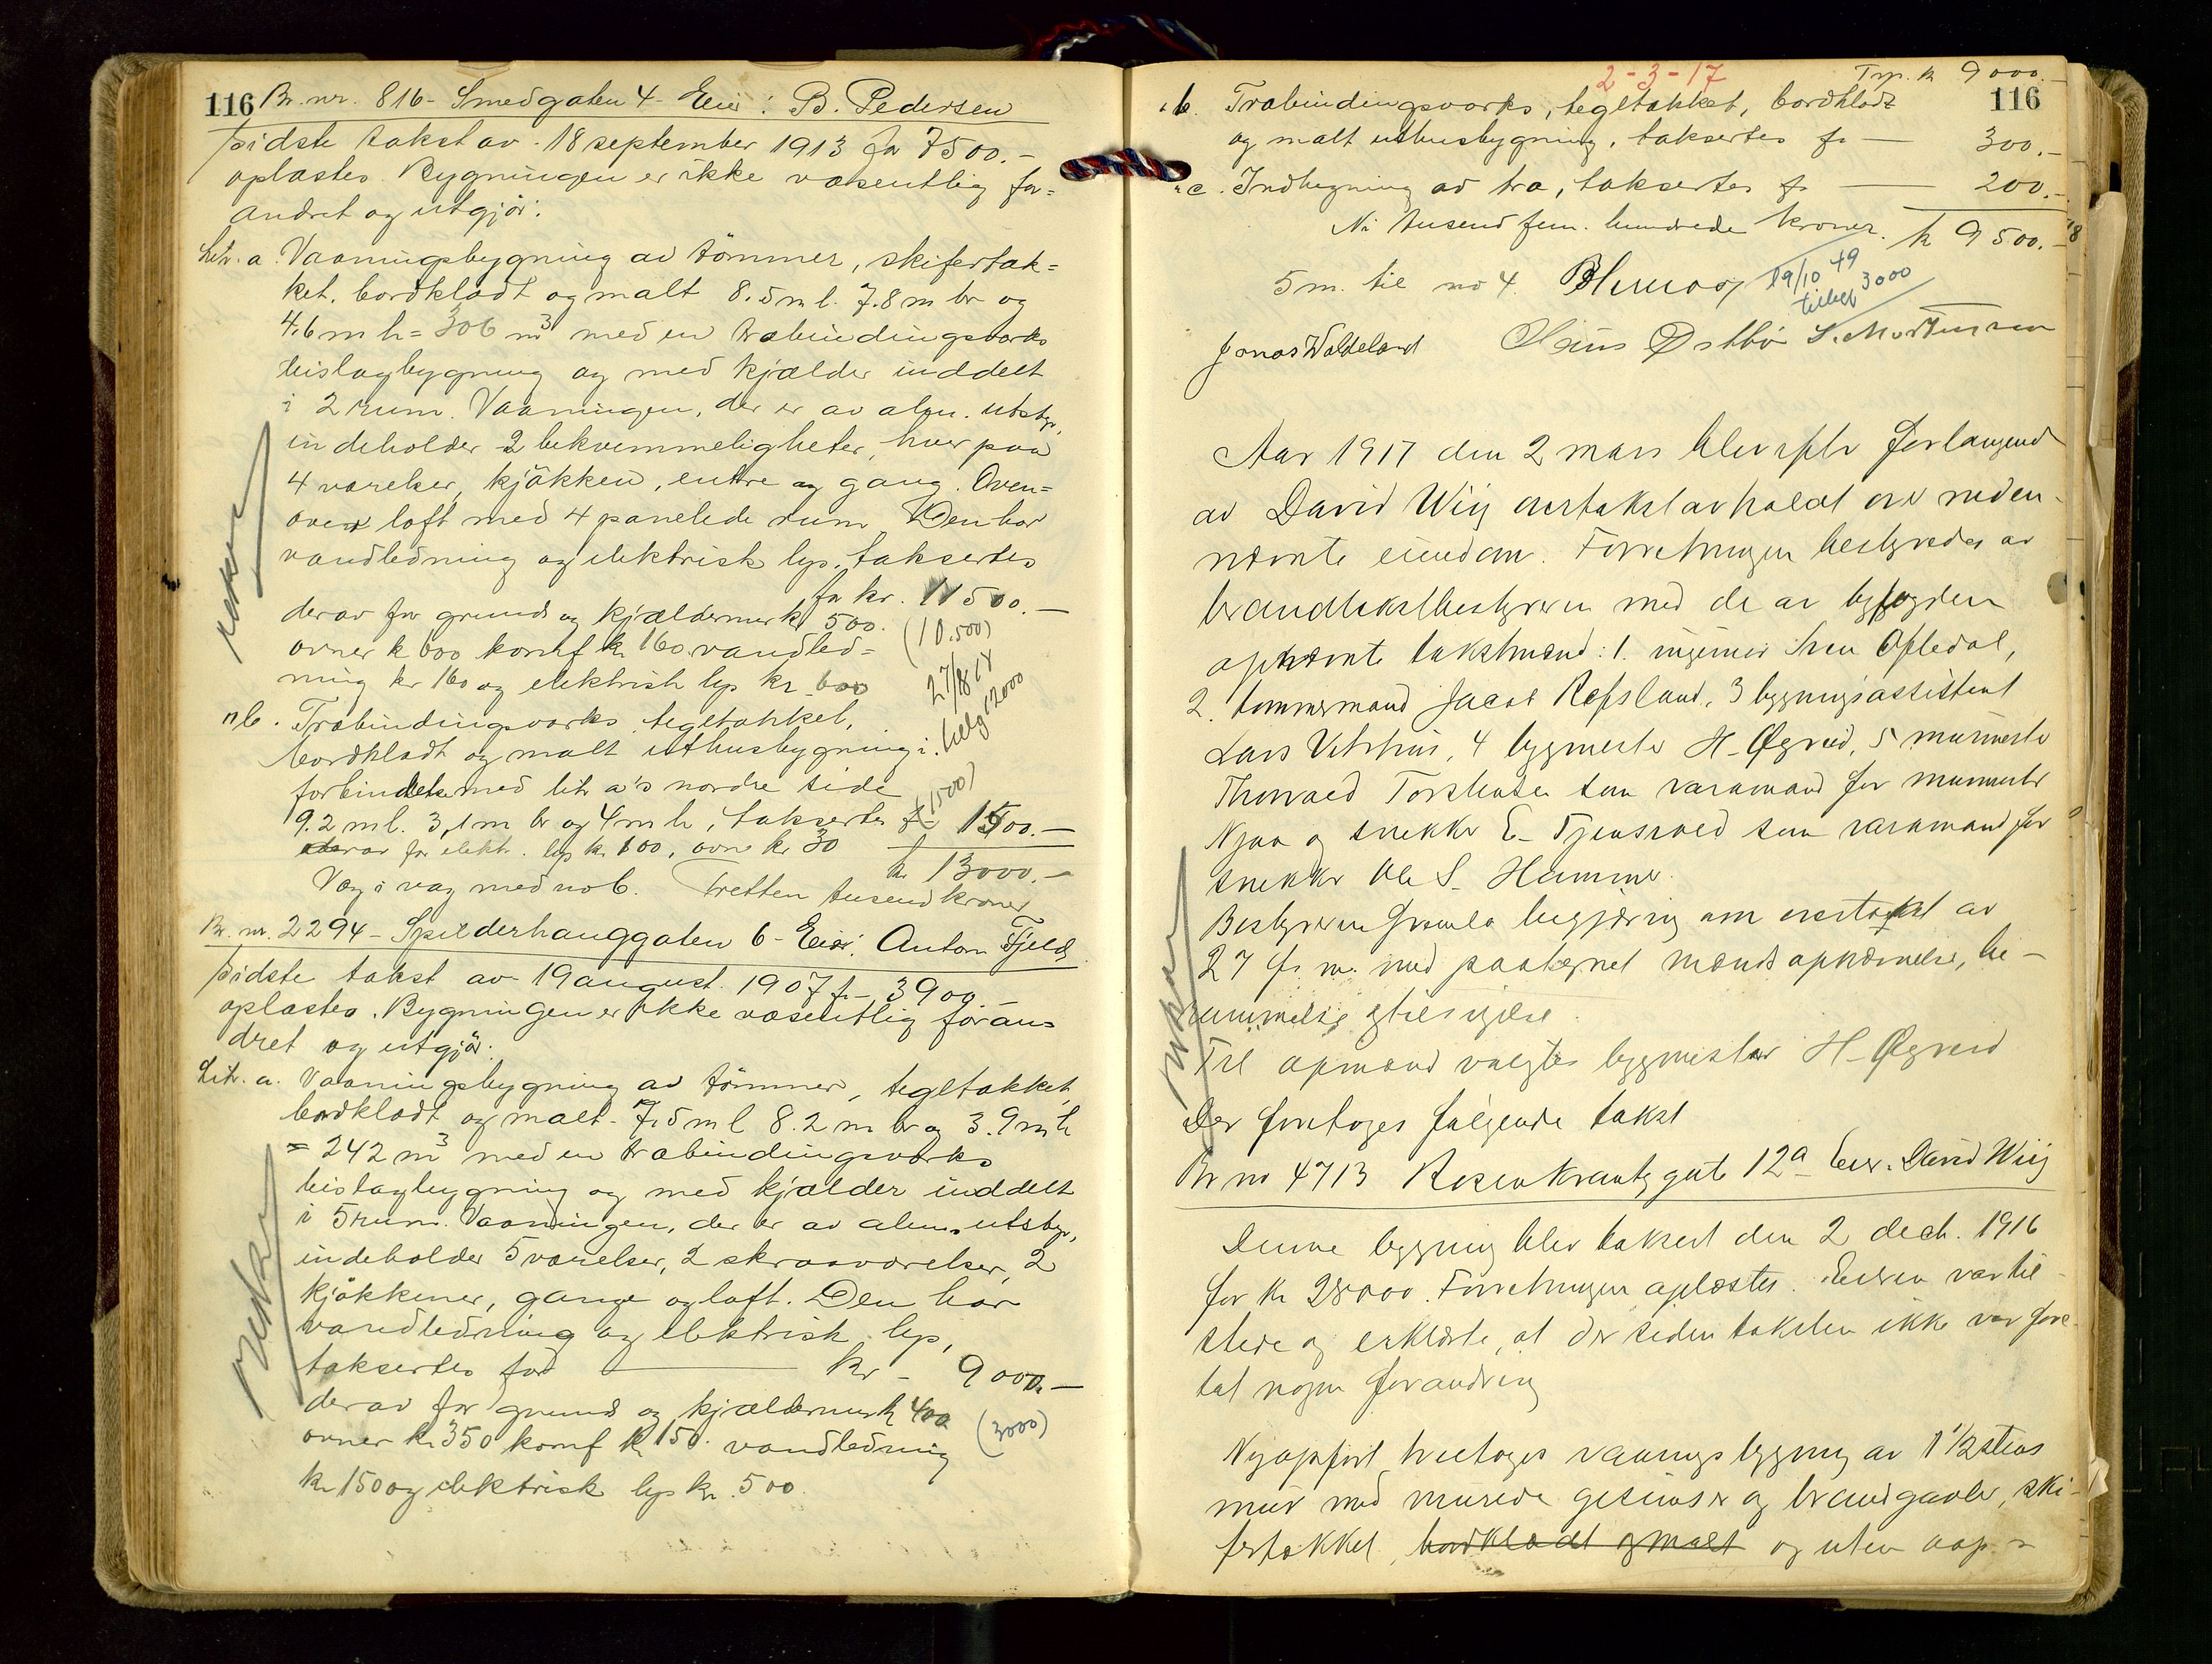 116 Br. nr. 816 - Smedgaten 4 - Eier: B. Pedersen
sidste takst av 18 september 1913 for 7500.-
oplæstes. Bygningen er ikke væsentlig for=
andret og utgjör:
Litr. a. Vaaningsbygning av tömmer, skifertæk=
ket, bordklædt og malt 8.5 m l. 7.8 m br og
4.6 m h = 306 m3 med en træbindingsverks
bislagbygning og med kjælder inddelt
i 2 rum. Vaaningen, der er av alm. utstyr,
indeholder 2 bekvemmeligheter, hver paa
4 værelser, kjökken, entre og gang. Oven=
over loft med 4 panelede rum. Den har
vandledning og elektrisk lys, taksertes
for kr. 11500.-
derav for grund og kjældermur kr 500. (10.500)
ovner k 600 komf k. 160. vandled=
ning kr 160 og elektrisk lys kr 600
27/8 18
tillæg 12000
" b. Træbindingsværks, tegltækket,
bordklædt og malt uthusbygning i
forbindelse med litr a's nordre side
9.2 m l. 3,1 m br og 4 m h, taksertes f- 1500.-
(1500)
derav for elektr. lys kr. 100, ovn kr 30
k 13000.-
Væg i væg med no 6. Tretten tusend kroner
Br. nr. 2294 - Spilderhauggaten 6 - Eier: Anton Fjeld
sidste takst av 19 august 1907 f- 3900.-
oplæstes. Bygningen er ikke væsentlig foran=
dret og utgjör:
Litr. a. Vaaningsbygning av tömmer, tegltækket,
bordklædt og malt - 7,5 m l 8.2 m br og 3.9 m h
= 242 m3 med en træbindingsverks
bislagbygning og med kjælder inddelt
i 5 rum. Vaaningen, der er av alm. utstyr,
indeholder 5 værelser, 2 skraaværelser, 2
kjökkener, gange og loft. Den har
vandledning og elektrisk lys,
taksertes for kr - 9000.-
derav for grund og kjældermur k 400 (3000)
ovner kr 350 komf k 150. vandledning
kr 150 og elektrisk lys kr. 500.
2-3-17
Trp. k 9000.-
116
" b. Træbindingsværks, tegltækket, bordklædt
og malt uthusbygning, taksertes f- 300.-
" c. Indhegning av træ, taksertes f- 200.-
Ni tusend fem hundrede kroner. k 9500.-
5 m. til no 4.
19/10 49
tillegg 3000
Jonas Waldeland Hans Østbö S. Mortensen
Aar 1917 den 2 mars blev efter forlangend
av David Wiig omtakst avholdt over neden-
nævnte eiendom. Forretningen bestyredes av
brandtakstbestyreren med de av byfogden
opnævnte takstmænd: 1. ingeniör Sven Oftedal,
2. tömmermand Jacob Refsland, 3 bygningsassistent
Lars Vetrhus, 4 bygmester H. Øgreid, 5 murmester
Thorvald Torstensen som varamand for murmester
Njaa og snekker E. Tjensvold som varamand for
snekker Ole S. Hammer.
Bestyreren fremla begjæring om omtakst av
27 f. m. med paategnet mænds opnævnelse, be-
rammelse og tilsigelse.
Til opmand valgtes bygmester H. Øgreid
Der foretoges fölgende takst
Br no 4713 Rosenkrantzgate 12a Eier. David Wiig
Denne bygning blev taksert den 2 decb. 1916
for kr 28000. Forretningen oplæstes. Eieren var til-
stede og erklærte, at der siden taksten ikke var fore-
tat nogen forandring
Nyopfört treetages vaaningsbygning av 1 1/2 stens
mur med murede gesimser og brandgavler, ski-
fertækket, bordklædt og malt og uten aap=